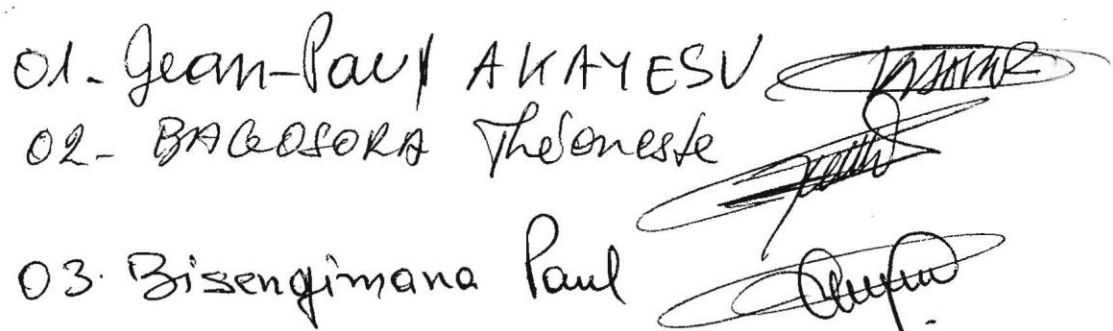 01- Jean-Paul AKAYESU
02- BAGOSORA Théoneste
03. Bisengimana Paul